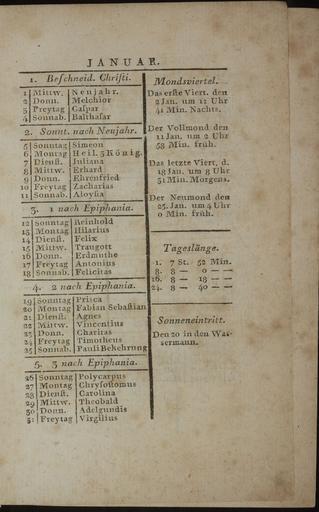 JANUAR.
1. Beſchneid. Chriſti.
1 Mittw. Neujahr.
2 Donn. Melchior
3 Freytag Caſpar
4 Sonnab. Balthaſar
2. Sonnt. nach Neujahr.
5 Sonntag Simeon
6 Montag Heil. 3 König.
7 Dienſt. Juliana
8 Mittw. Erhard
9 Donn. Ehrenfried
10 Freytag Zacharias
11 Sonnab. Aloyſia
3. 1 nach Epiphania.
12 Sonntag Reinhold
13 Montag Hilarius
14 Dienſt. Felix
15 Mittw. Traugott
16 Donn. Erdmuthe
17 Freytag Antonius
18 Sonnab. Felicitas
4. 2 nach Epiphania.
19 Sonntag Priſca
20 Montag Fabian Sebaſtian
21 Dienſt. Agnes
22 Mittw. Vincentius
23 Donn. Charitas
24 Freytag Timotheus
25 Sonnab. Pauli Bekehrung
5. 3 nach Epiphania.
26 Sonntag Polycarpus
27 Montag Chryſoſtomus
28 Dienſt. Carolina
29 Mittw. Theobald
30 Donn. Adelgundis
31 Freytag Virgilius
Mondsviertel.
Das erſte Viert. den
2 Jan. um 11 Uhr
41 Min. Nachts.
Der Vollmond den
11 Jan. um 2 Uhr
58 Min. früh.
Das letzte Viert. d.
18 Jan. um 8 Uhr
51 Min. Morgens.
Der Neumond den
25. Jan. um 4 Uhr
0 Min. früh.
Tageslänge.
1. 7 St. 52 Min.
8. 8 — 0 — —
16. 8 — 18 — —
24. 8 — 40 — —
Sonneneintritt.
Den 20 in den Waſ-
ſermann.